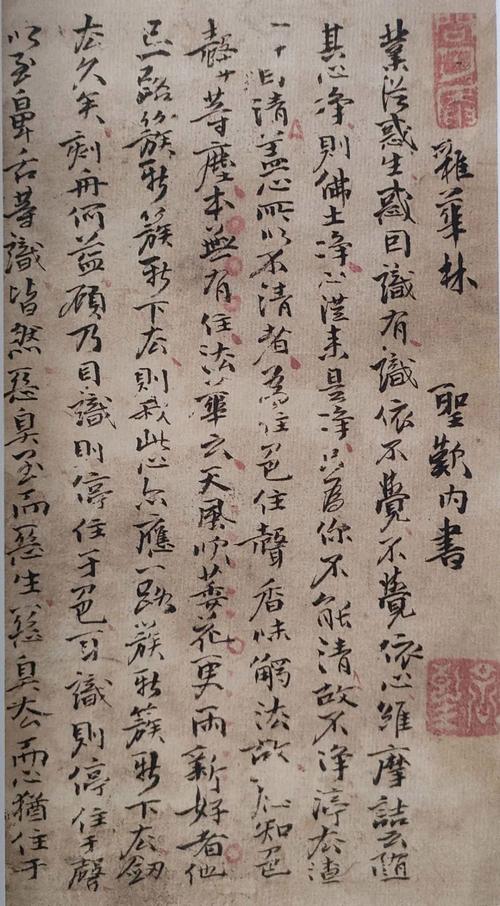 雜華林 聖歎内書
業從惑生惑因識有識依不覺不覺依心維摩詰云隨
其心淨則佛土淨心從来是淨只爲你不能清故不淨渟去渣
曰清蓋心所以不清者爲住色住聲香味觸法故應知色
聲廿等塵本無有住法華云天風吹萎花更雨新好者他
是一路簇新簇新下去則我此心亦應一路簇新簇新下去劒
去久矣刻舟何益顧乃目識則停住于色耳識則停住于聲
以至鼻舌等識皆然惡臭至而惡生惡臭去而心猶住于